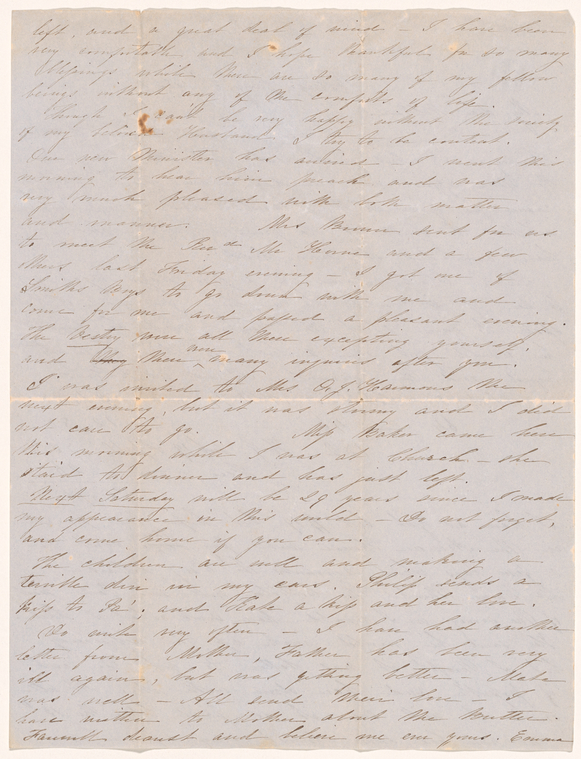 left, and a great deal of mind - I have been
very comfortable and I hope thankful for so many
blessings while there are so many of my fellow
beings without any of the comforts of life.
Though I can't be very happy without the society
of my beloved Husband I try to be content.
Our new Minister has arrived - I went this
morning to hear him preach and was
very much pleased with both matter
and manner. Mrs Brown sent for us
to meet the Revd Mr and a few
others last Friday evening - I got one of
Smiths boys to go down with me and
come for me and passed a pleasant evening.
The Vestry were all there excepting yourself,
and there were many inquiries after you.
I was invited to Mrs O.J. Hammond the
next evening, but it was stormy and I did
not care to go. Miss Baker came here
this morning while I was at Church - she
staid to dinner and has just left.
Next Saturday will be 29 years since I made
my appearance in this world - Do not forget,
and come home if you can.
The children are well and making a
terrible din in my ears. Philip sends a
kiss to Pa', and Kate a kiss and her love.
Do write very often - I have had another
letter from Mother, Father has been very
ill again, but was getting better -
was well - All send their love - I
have written to Mother about the
Farewell dearest and believe me ever yours. Emma